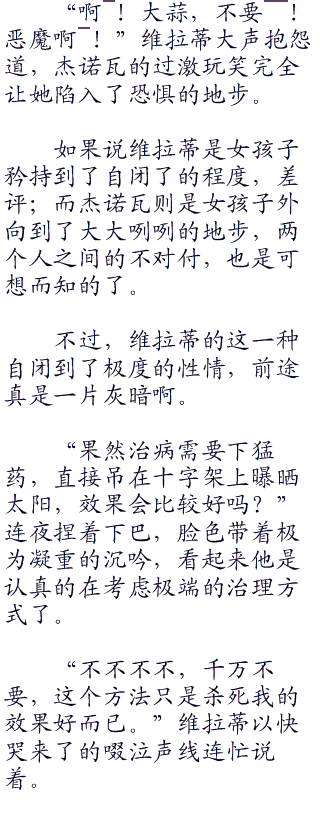 “啊¯！大蒜，不要¯¯！
恶魔啊¯！”维拉蒂大声抱怨
道，杰诺瓦的过激玩笑完全
让她陷入了恐惧的地步。
如果说维拉蒂是女孩子
矜持到了自闭了的程度，差
评；而杰诺瓦则是女孩子外
向到了大大咧咧的地步，两
个人之间的不对付，也是可
想而知的了。
不过，维拉蒂的这一种
自闭到了极度的性情，前途
真是一片灰暗啊。
“果然治病需要下猛
药，直接吊在十字架上曝晒
太阳，效果会比较好吗？”
连夜捏着下巴，脸色带着极
为凝重的沉吟，看起来他是
认真的在考虑极端的治理方
式了。
“不不不不，千万不
要，这个方法只是杀死我的
效果好而已。”维拉蒂以快
哭来了的啜泣声线连忙说
着。